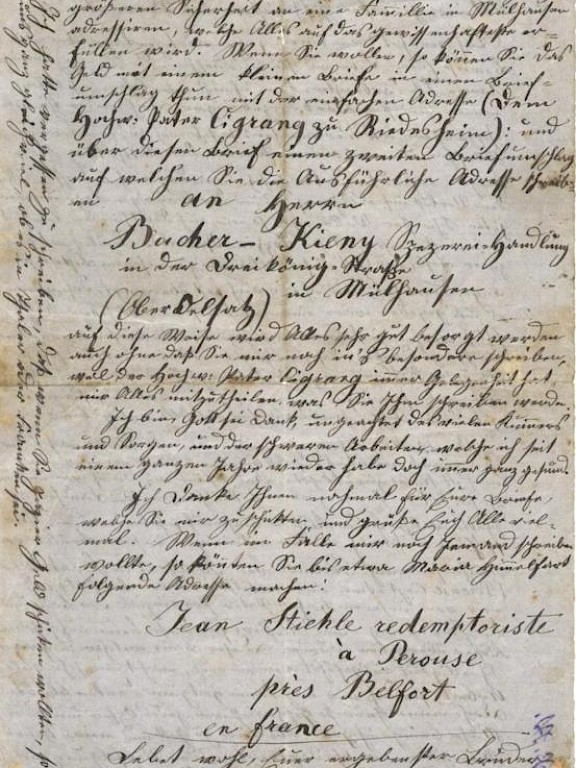 größeren Sicherheit an eine Fammillie in Mülhausen
adressiren, welche Alles auf das gewissenhafteste er-
füllen wird. Wenn Sie wollen, so können Sie das
Geld mit einem kleinen Briefe in einen Brief-
umschlag thun mit der einfachen Adresse (Dem
Hochw: Pater Cigrang zu Riedesheim): und
über diesen Brief einen zweiten Briefumschlag
auf welchen Sie die Ausführliche Adresse schreib-
en an Herrn
Bacher- Kieny Spezerei-Handlung
in der Dreikönig-Straße
in Mülhausen
(Ober Elsaß)
auf diese Weise wird Alles sehr gut besorgt werden
auch ohne daß Sie mir noch in's besondere schreiben,
weil der Hochw: Pater Cigrang immer Gelegenheit hat
mir Alles mitzutheilen, was Sie Ihm schreiben werden.
Ich bin, Gott sei Dank, ungeachtet des vielen Kummers
und Sorgen, und der schweren Arbeiten, welche ich seit
einem ganzen Jahre wieder habe doch imer ganz gesund.
Ich Danke Ihnen nochmal für Eure Briefe,
welche Sie mir zu schickten, und grüße Euch Alle viel-
mal. Wenn im Falle mir noch Jemand schreiben
wollte, so könten Sie bis etwa Maria Himmelfart
folgende Adresse machen:
Jean Stiehle redemptoriste
à Perouse
près Belfort
en france
Lebet wohl, Euer ergebenster Bruder
Ich hatte vergessen zu schreiben, daß wenn Sie Papier Geld schicken wollten, so
ganz gleich viel ob es in Thaler oder